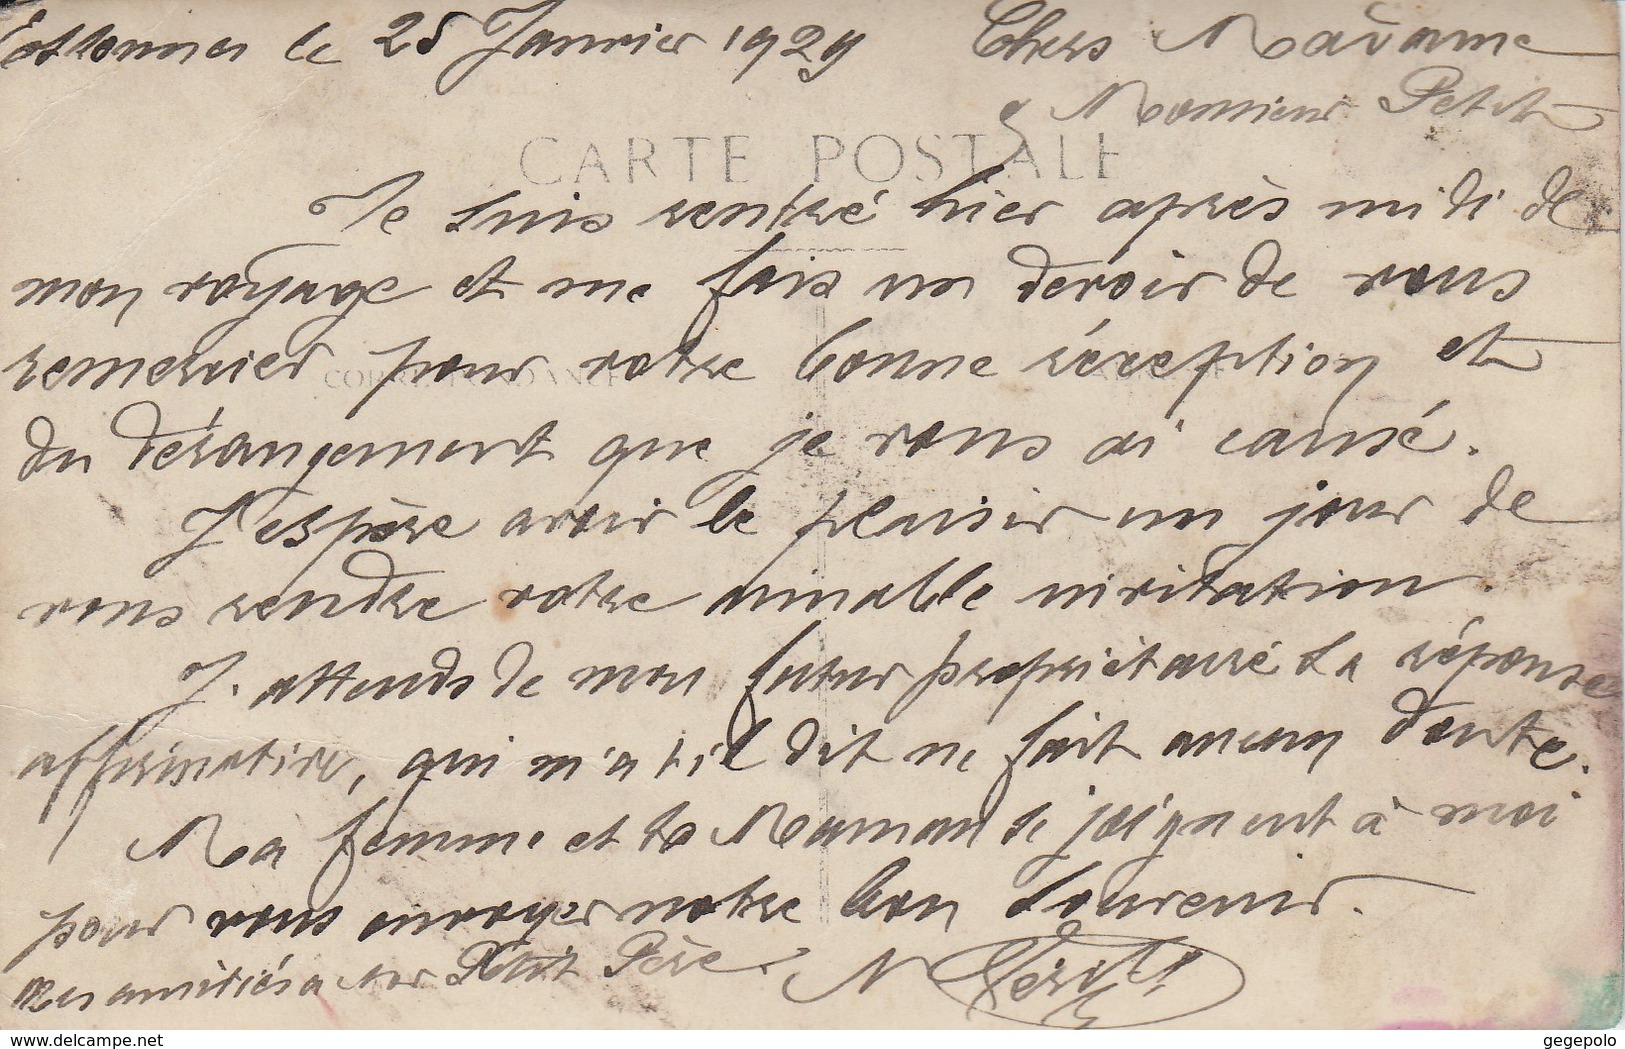 Essonnes le 25 Janvier 1929 Chers Madame
& Monsieur Petit
CARTE POSTALE
Je suis rentré hier après midi de
mon voyage et me fais un devoir de vous
remercier pour votre bonne réception et
CORRESPONDANCE
du dérangement que je vous ai causé.
J'espère avoir le plaisir un jour de
vous rendre votre aimable invitation.
J. attends de mon futur propriétaire la réponse
affirmative, qui m'a t'il dit ne fait aucun doute.
Ma femme et la Maman se joignent à moi
pour vous envoyer notre bon souvenir.
Mes amitiés a Petit Père.
www.delcampe.net gegepolo